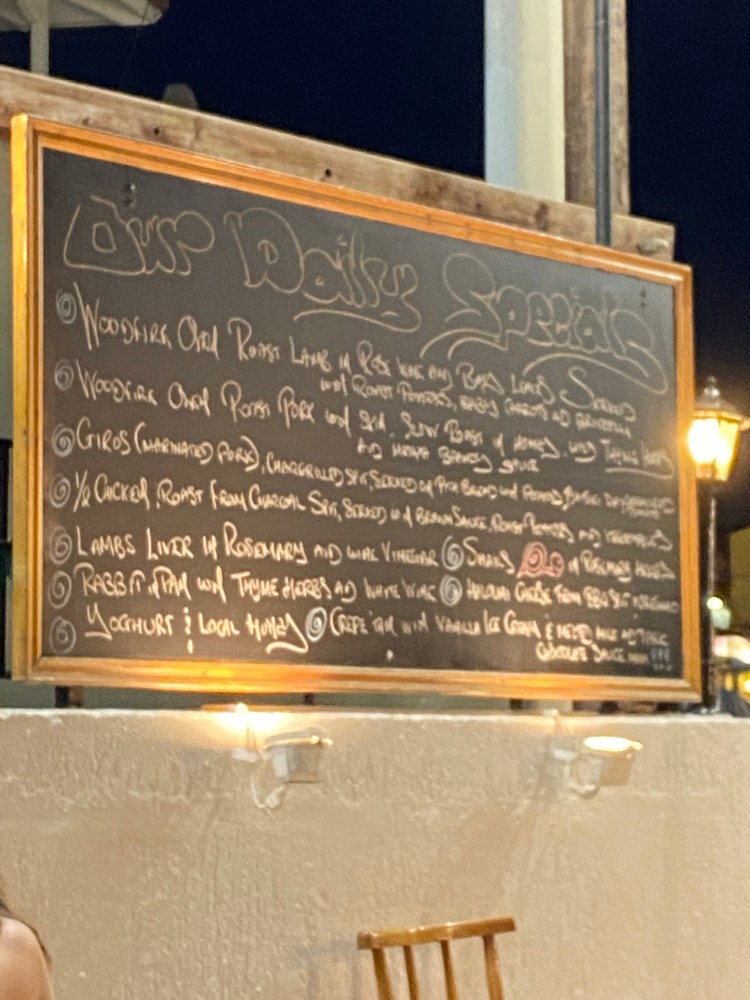 Our Daily Specials
WOODFIRE OVEN ROAST LAMB IN ROSE WINE AND BAY LEAVES SERVED
WITH ROAST POTATOES, BABY CARROTS AND
WOODFIRE OVEN ROAST PORK WITH SKIN, SLOW ROAST IN HONEY WITH THYME HERBS
AND BRANDY SAUCE
GIROS (MARINATED PORK), CHARGRILLED SPIT, SERVED ON PITA BREAD WITH
1/2 CHICKEN, ROAST FROM CHARCOAL SPIT, SERVED WITH BROWN SAUCE, ROAST POTATOES AND VEGETABLES
LAMBS LIVER IN ROSEMARY AND WINE VINEGAR SNAILS IN ROSEMARY
RABBIT IN PAN WITH THYME HERBS AND WHITE WINE CHEESE FROM BBQ
YOGHURT & LOCAL HONEY CREPE WITH VANILLA ICE CREAM &
CHOCOLATE SAUCE